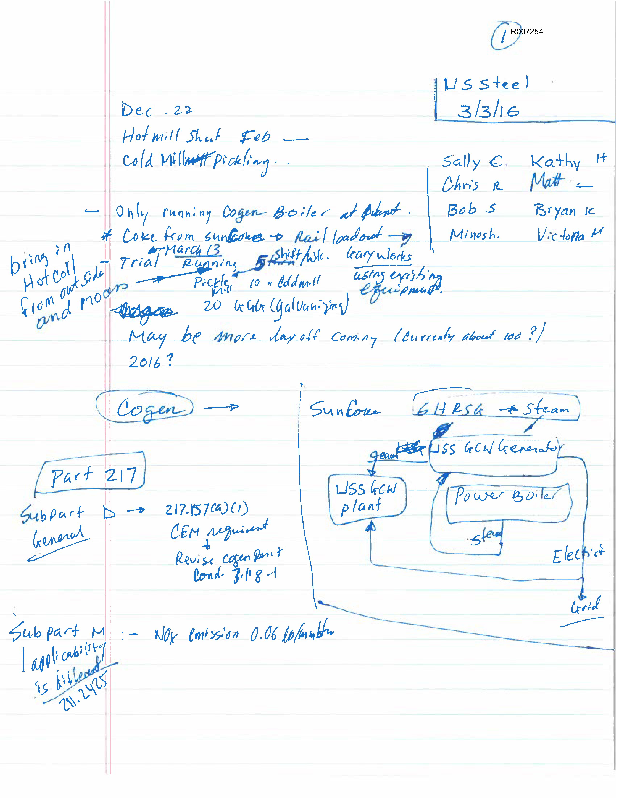 1 R007254
US Steel
3/3/16
Dec. 22
Hot mill Shut Feb —
Cold Mill Pickling.
Sally C. Kathy H
Chris R Matt
Bob S Bryan K
Minosh. Victoria M
— Only running Cogen Boiler at plant.
* Coke from sunCoke → Rail loadout →
March 13
Trial Running 5 shift/wk. Gary Works
using existing
equipment.
bring in
Hot Coil
from outside
and
Pickle 10 " Cold mill
20 (Galvanizing)
May be more layoff coming (Currently about 100?)
2016?
Cogen →
SunCoke 6 HRSG → Steam
steam USS GCW Generator
USS GCW
plant
Power Boiler
steam
Electric
Grid
Part 217
Subpart D → 217.157(a)(1)
General
CEM requirement
↓
Revise cogen permit
Cond.
Subpart M :- NOx emission 0.06 lb/mmbtu
applicability
is different
211.2425